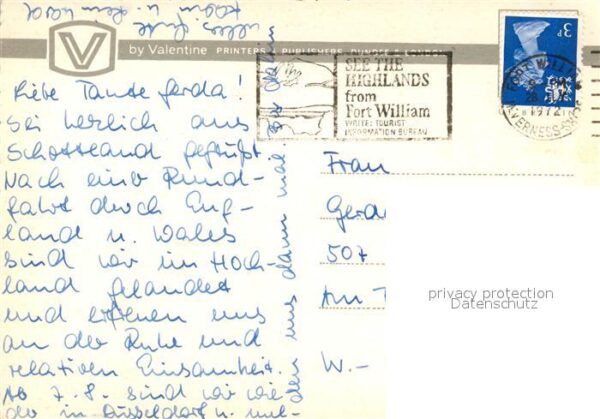 by Valentine PRINTERS & PUBLISHERS DUNDEE & LONDON
SEE THE
HIGHLANDS
from
Fort William
WRITE: TOURIST
INFORMATION BUREAU
3P
FORT WILLIAM
1972
INVERNESS-SHIRE
Liebe Tante Gerda!
Sei herzlich aus
Schottland gegrüßt.
Nach einer Rund-
fahrt durch Eng-
land u. Wales
sind wir im Hoch-
land gelandet
und erfreuen uns
an der Ruhe und
relativen Einsamkeit.
Ab 7.8. sind wir wie
der in Düsseldorf u. mel-
den uns dann mal. Bis dahin
alles Gute
Frau
Gerd
507
Am T
W.-
privacy protection
Datenschutz